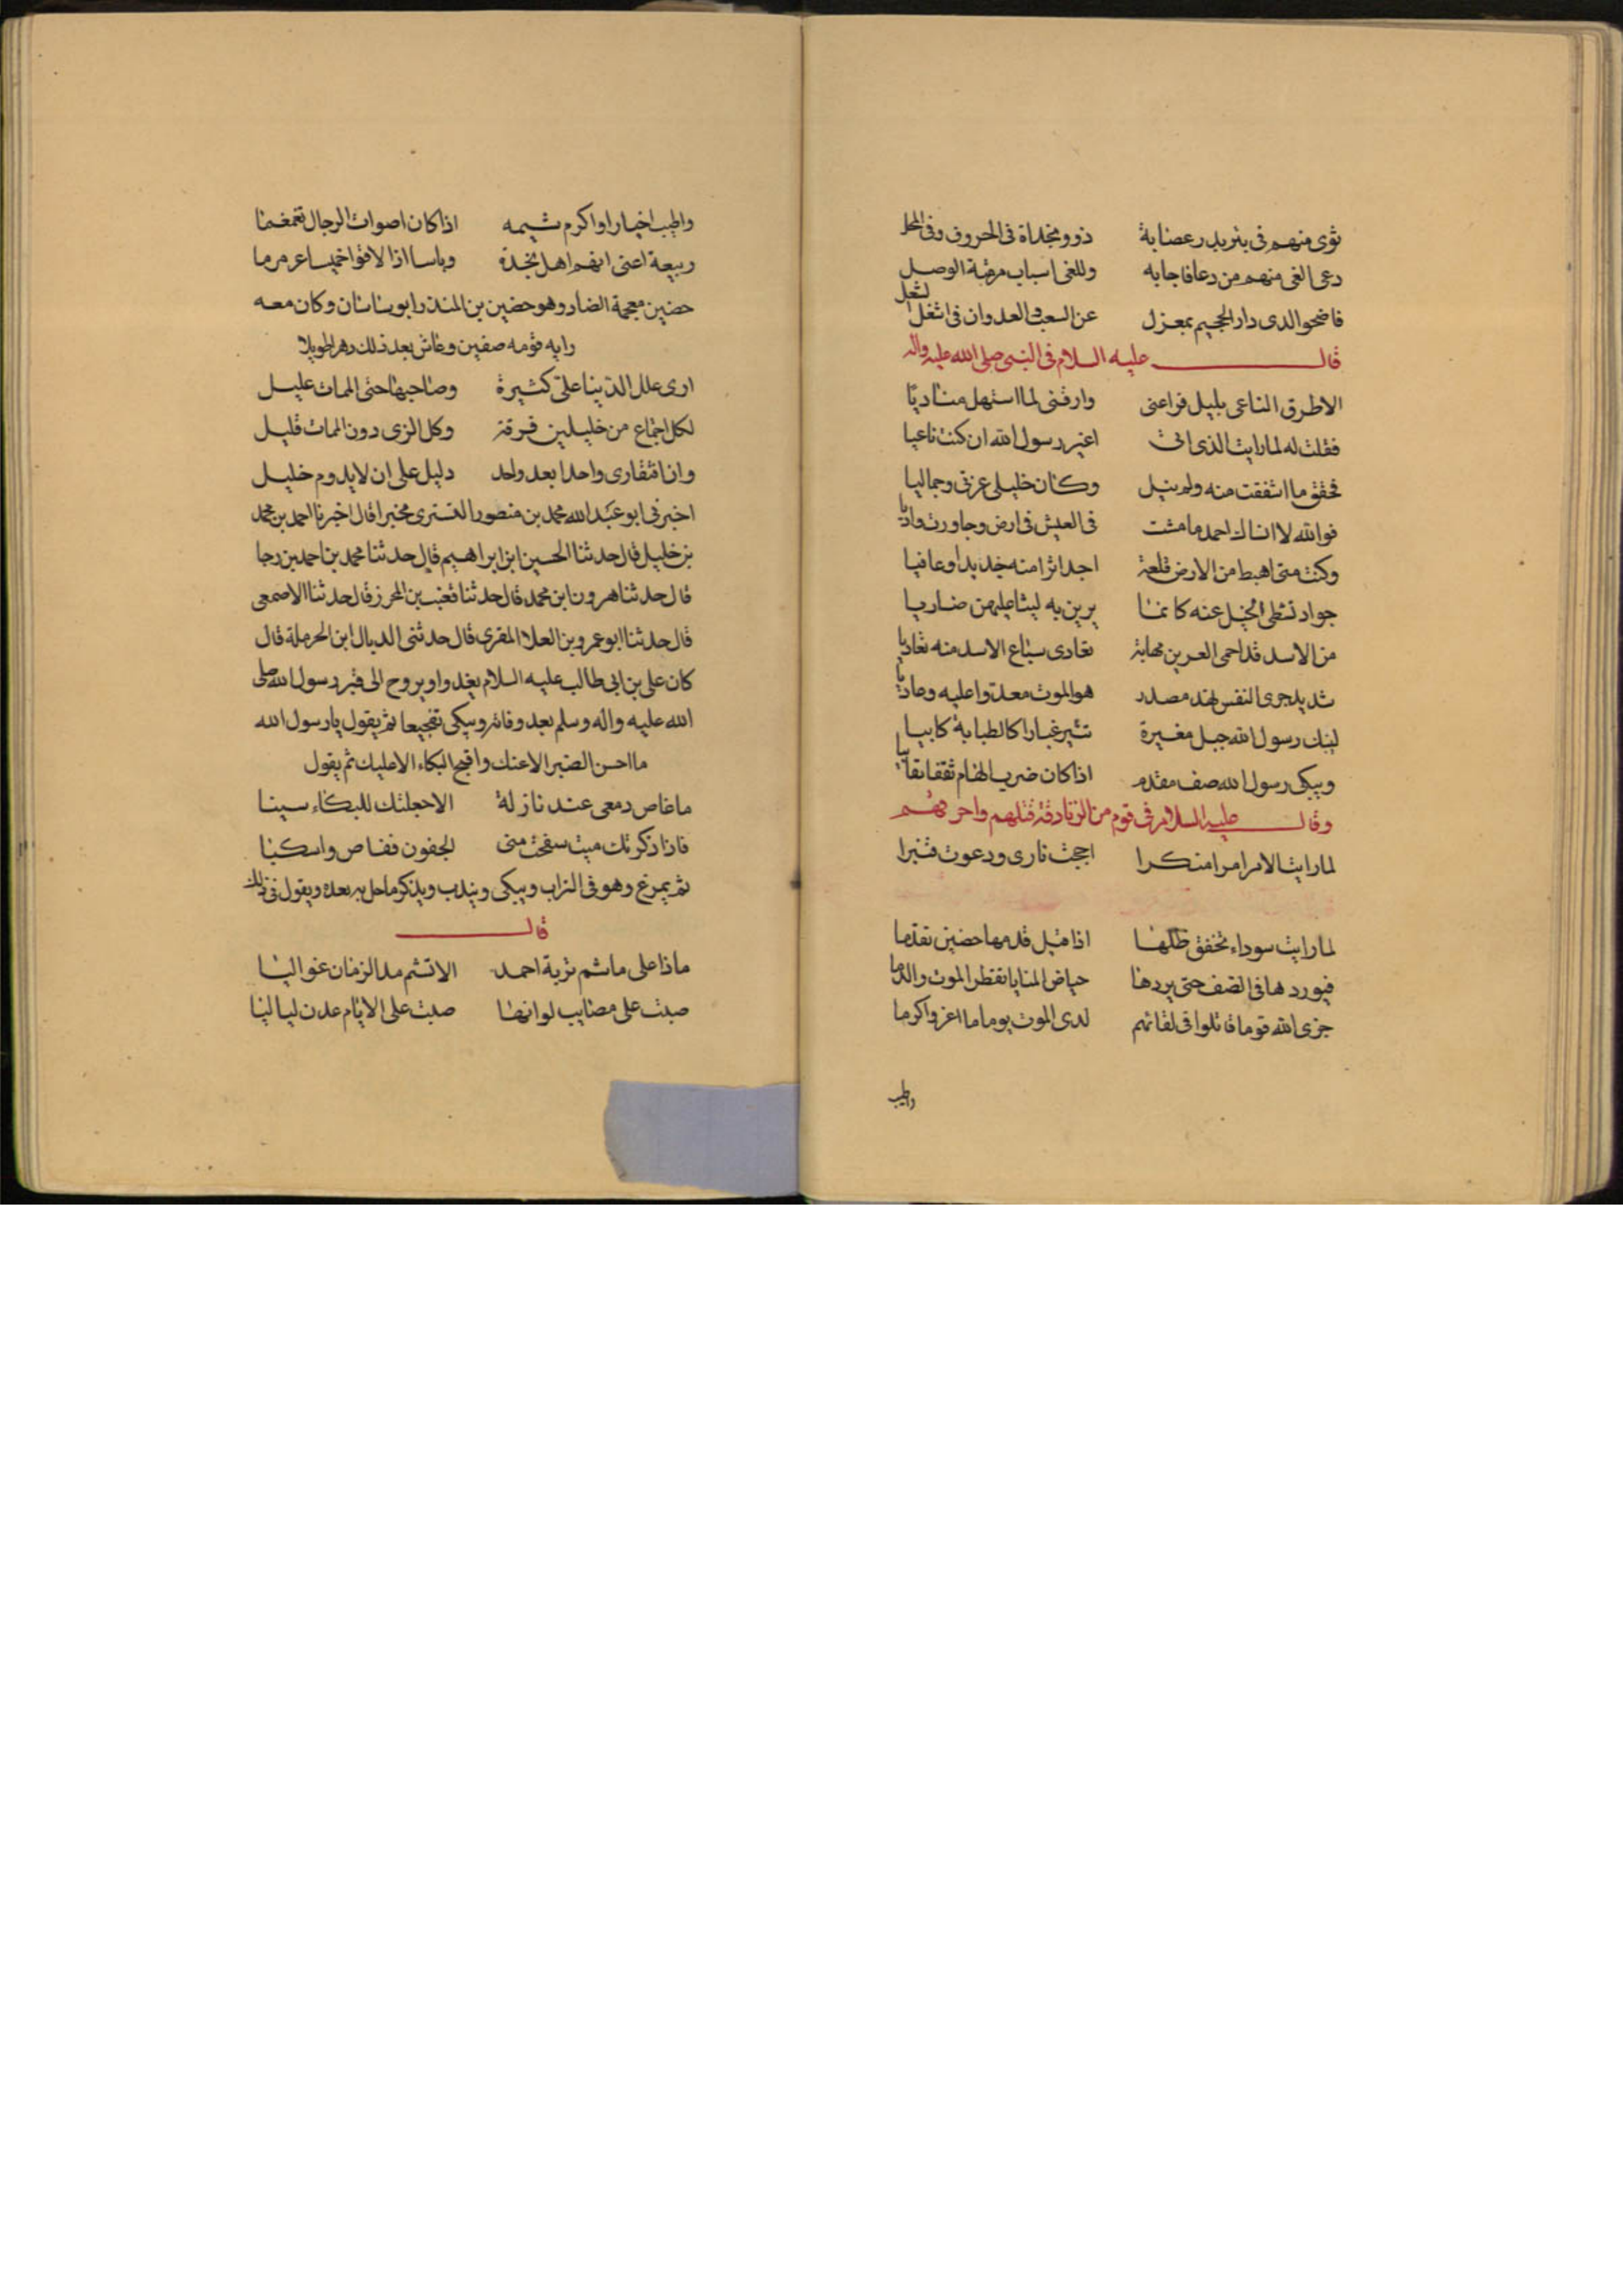 ثوى منهم فى بئر بدر عصابة ذوو نجداة فى الحروف وفى المحل
دعى الغى منهم من دعا فاجابه وللغى اسباب مرقبة الوصل
فاضحوا لدى دار الجحيم بمعزل عن السعب والعدوان فى اشغل لشغل
قال عليه السلام فى النبى صلى الله عليه واله
الا طرق الناعى بليل فراعنى وارقنى لما استهل مناديا
فقلت له لما رايت الذى اتى اغير رسول الله ان كنت ناعيا
فحقق ما اشفقت منه ولم ينل وكان خليلى عزتى وجماليا
فوالله لا انساك احمد ما مشت فى العيش فى ارض وجاورت واديا
وكنت متى اهبط من الارض قلعة اجد اثرا منه جديدا وعافيا
جواد تشظى الخيل عنه كانما يرين به ليثا عليهن ضاريا
من الاسد قد احمى العرين مهابة تفادى سباع الاسد منه تفاديا
شديد جرى النفس نهد مصدر هو الموت معدوا عليه وعاديا
لبنك رسول الله جبل مغيرة تثير غبارا كالطبابة كابيا
ويبكى رسول الله صف مقدم اذا كان ضرب الهام ثقفا نقابيا
وقال عليه السلام فى قوم من الزنادقة قتلهم واحرقهم
لما رايت الامر امرا منكرا اججت نارى ودعوت قنبرا
لما رايت سوداء تخفق ظلها اذا قيل قدمها حضين تقدما
فيوردها فى الصف حتى يردها حياض المنايا تقطر الموت والدما
جزى الله قوما قاتلوا فى لقائهم لدى الموت يوما ما اعز واكرما
واطيب
واطيب اخبارا واكرم شيمه اذا كان اصوات الرجال تغمغما
ربيعة اعنى انهم اهل نجدة وباسا اذا لاقوا خميسا عرمرما
حضين معجمة الضاد وهو حضين بن المنذر ابو ساسان وكان معه
رايه قومه صفين وعاش بعد ذلك دهرا طويلا
ارى علل الدنيا على كثيرة وصاحبها حتى الممات عليل
لكل اجتماع من خليلين فرقة وكل الزى دون الممات قليل
وان افتقارى واحدا بعد واحد دليل على ان لا يدوم خليل
اخبرنى ابو عبد الله محمد بن منصور التسترى مخبرا قال اخبرنا احمد بن محمد
بن خليل قال حدثنا الحسين ابن ابراهيم قال حدثنا محمد بن احمد بن رجا
قال حدثنا هرون ابن محمد قال حدثنا قعنب بن المحرز قال حدثنا الاصمعى
قال حدثنا ابو عمرو بن العلا المقرى قال حدثنى الديال ابن الحرملة قال
كان على بن ابى طالب عليه السلام يغدوا ويروح الى قبر رسول الله صلى
الله عليه واله وسلم بعد وفاته ويبكى تفجيعا ثم يقول يا رسول الله
ما احسن الصبر الا عنك واقبح البكاء الا عليك ثم يقول
ما غاص دمعى عند نازلة الا جعلتك للبكاء سببا
فاذا ذكرتك ميت سفحت منى الجفون ففاص واسكبا
ثم يمرغ وهو فى التراب ويبكى ويندب ويذكر ما حل به بعده ويقول فى ذلك
قال
ماذا على ما شم تربة احمد الا تشم مدا الزمان غواليا
صبت على مصايب لو انها صبت على الايام عدن لياليا